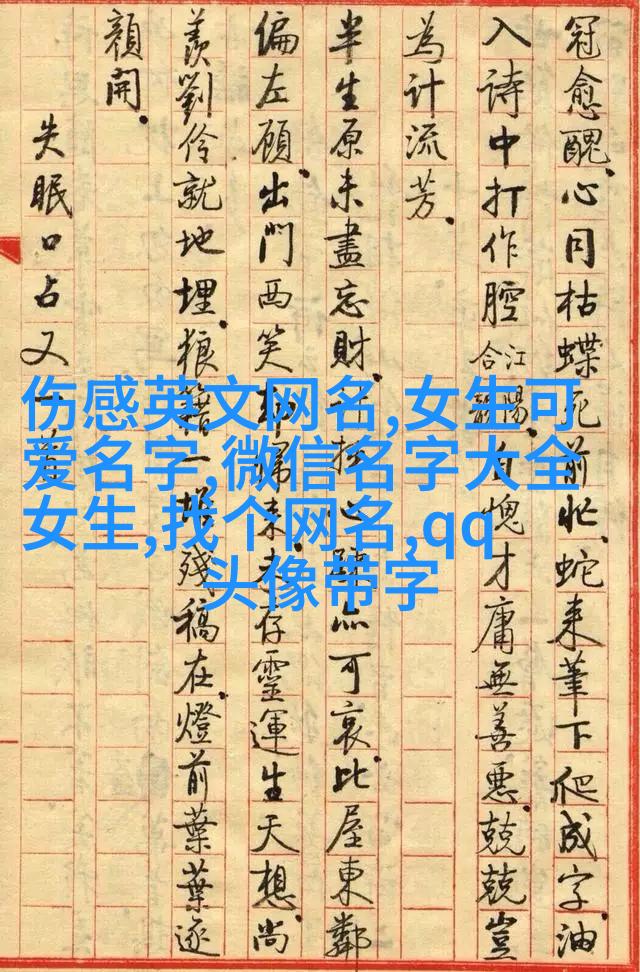 冠愈醜。心同枯蝶死前忙。蛇来筆下爬成字。油
入詩中打作腔。江陽合韻自愧才庸無善惡。兢兢豈
為計流芳。
半生原未盡忘財。心可哀。比屋東鄰
偏左顧。出門西笑却歸来。存靈運生天想。尚
羨劉伶就地埋。狼籍一殘稿在。燈前葉葉逐
顏開。
失眠口占又一首
伤感英文网名,女生可
爱名字,微信名字大全
女生,找个网名,qq
头像带字